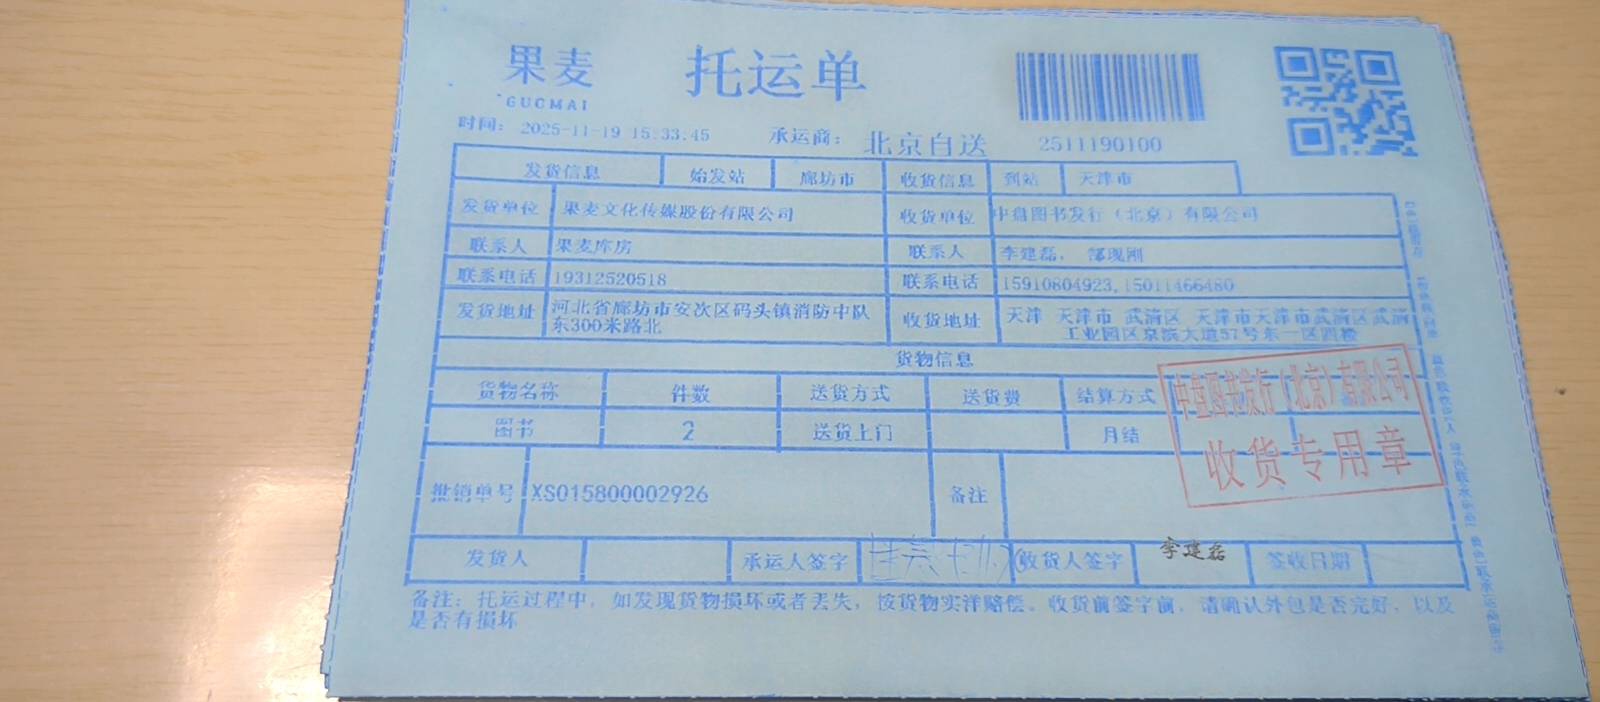 果麦
GUOMAI
托运单
时间: 2025-11-19 15:33:45
承运商: 北京自送
2511190100
发货信息 始发站 廊坊市 收货信息 到站 天津市
发货单位 果麦文化传媒股份有限公司 收货单位 中盘图书发行（北京）有限公司
联系人 果麦库房 联系人 李建磊, 郜现刚
联系电话 19312520518 联系电话 15910804923,15011466480
发货地址 河北省廊坊市安次区码头镇消防中队
东300米路北
收货地址 天津 天津市 武清区 天津市天津市武清区武清
工业园区京滨大道57号东一区四楼
货物信息
货物名称 件数 送货方式 送货费 结算方式
图书 2 送货上门 月结
中盘图书发行（北京）有限公司
收货专用章
批销单号 XS015800002926 备注
发货人 承运人签字 收货人签字 李建磊 签收日期
备注: 托运过程中, 如发现货物损坏或者丢失, 按货物实洋赔偿。收货前签字前, 请确认外包是否完好, 以及
是否有损坏